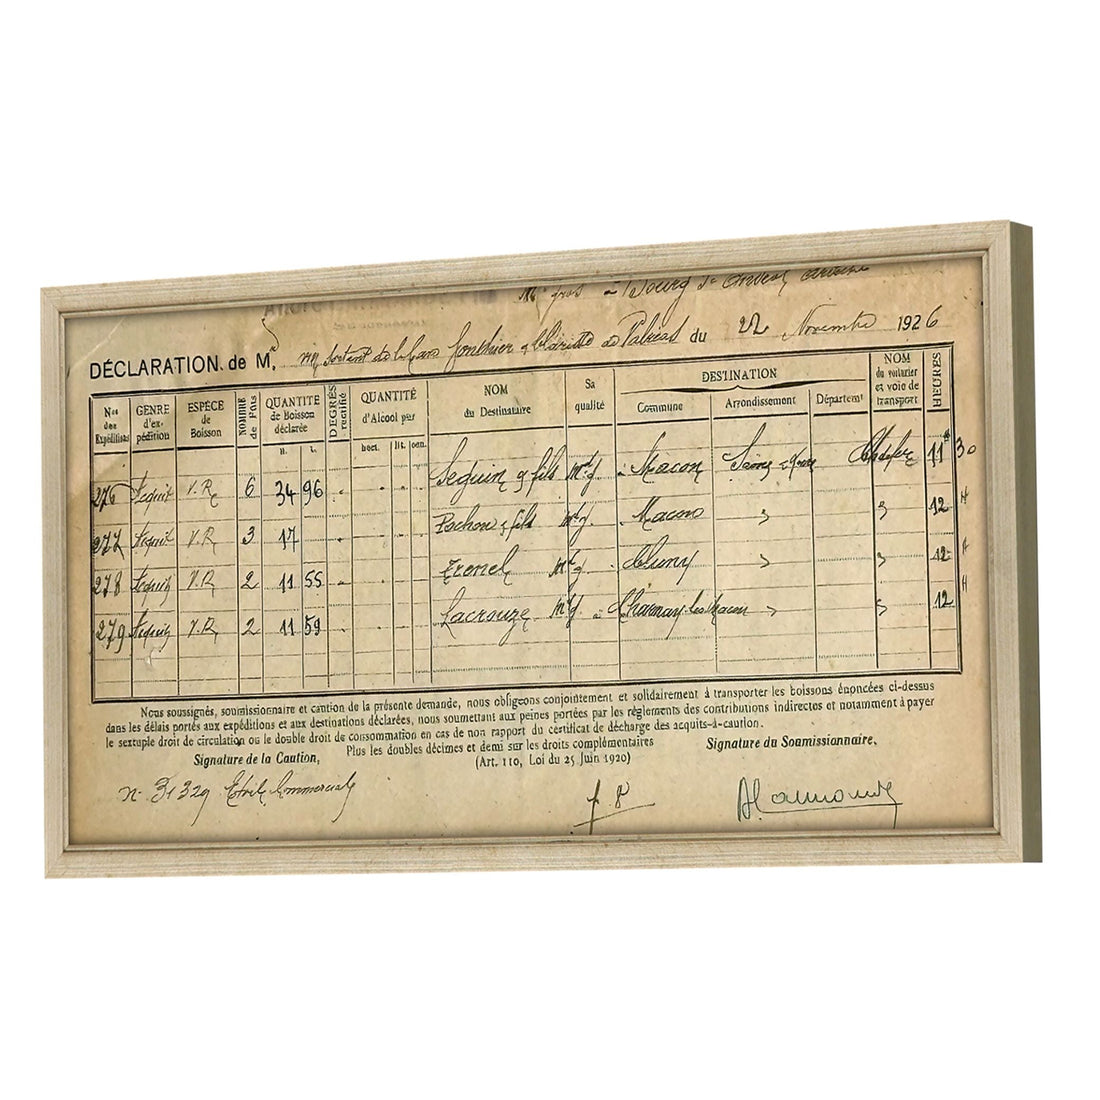 gros - Bourg St
DÉCLARATION. de M. vin sortant de la Cave Gonthier & Clariste de Valréas du 22 Novembre 1926
Nos des Expéditions GENRE d'ex-pédition ESPÈCE de Boisson NOMBRE de Fûts QUANTITÉ de Boisson déclarée DEGRÉS rectifié QUANTITÉ d'Alcool pur NOM du Destinataire Sa qualité DESTINATION Commune Arrondissement Départemt NOM du voiturier et voie de transport HEURES
H. L. hect. lit. cen.
276 Acquit V.R. 6 34 96 Seguin & fils Md g Macon Saône & Loire Ch de fer 11 H 30
277 Acquit V.R. 3 17 Pochon & fils Md g Macon 12 H
278 Acquit V.R. 2 11 55 Trenel Md g Cluny 12 H
279 Acquit V.R. 2 11 59 Lacrouze Md g Charnay-les-Macon 12 H
Nous soussignés, soumissionnaire et caution de la présente demande, nous obligeons conjointement et solidairement à transporter les boissons énoncées ci-dessus
dans les délais portés aux expéditions et aux destinations déclarées, nous soumettant aux peines portées par les règlements des contributions indirectes et notamment à payer
le sextuple droit de circulation ou le double droit de consommation en cas de non rapport du certificat de décharge des acquits-à-caution.
Plus les doubles décimes et demi sur les droits complémentaires
Signature de la Caution, (Art. 110, Loi du 25 Juin 1920) Signature du Soumissionnaire,
n° 31329 Commercial